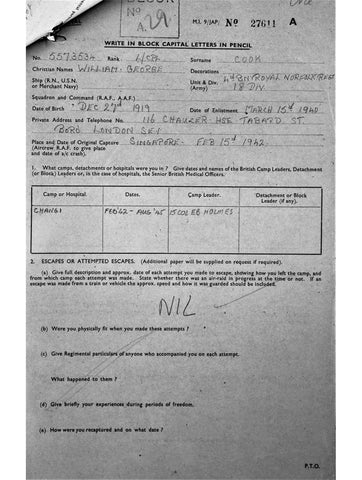 BLOCK
No A29
M.I. 9/JAP/ No 27611 A
WRITE IN BLOCK CAPITAL LETTERS IN PENCIL
No. 5773534 Rank L/CPL Surname COOK
Christian Names WILLIAM GEORGE Decorations
Ship (R.N., U.S.N. or Merchant Navy) Unit & Div. (Army) ROYAL NORFOLK REGT 18 DIV
Squadron and Command (R.A.F., A.A.F.)
Date of Birth DEC 27th 1919 Date of Enlistment MARCH 15th 1940
Private Address and Telephone No. 116 CHAUCER HSE TABARD ST.
BORO LONDON SE1
Place and Date of Original Capture SINGAPORE - FEB 15th 1942.
(Aircrew R.A.F. to give place
and date of a/c crash).
1. What camps, detachments or hospitals were you in? Give dates and names of the British Camp Leaders, Detachment
(or Block) Leaders or, in the case of hospitals, the Senior British Medical Officers.
Camp or Hospital. Dates. Camp Leader. Detachment or Block Leader (if any).
CHANGI FEB'42 - AUG '45 COL EB HOLMES
2. ESCAPES OR ATTEMPTED ESCAPES. (Additional paper will be supplied on request if required).
(a) Give full description and approx. date of each attempt you made to escape, showing how you left the camp, and
from which camp each attempt was made. State whether there was an air-raid in progress at the time or not. If an
escape was made from a train or vehicle the approx. speed and how it was guarded should be included.
NIL
(b) Were you physically fit when you made these attempts?
(c) Give Regimental particulars of anyone who accompanied you on each attempt.
What happened to them?
(d) Give briefly your experiences during periods of freedom.
(e) How were you recaptured and on what date?
P.T.O.